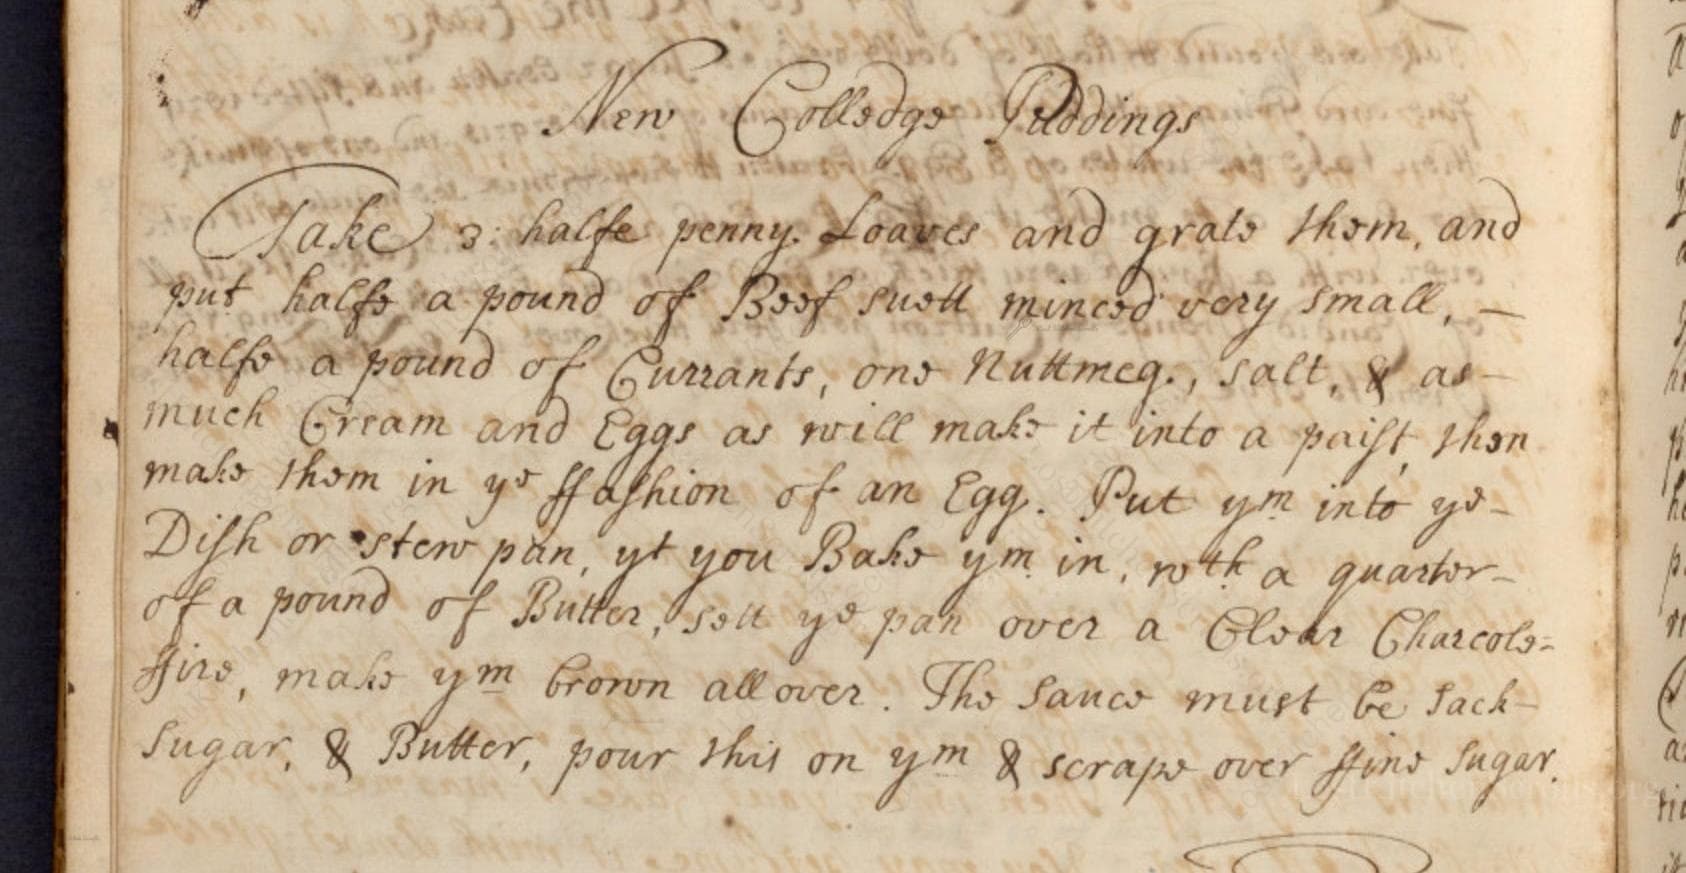 New Colledge Puddings
Take 3: halfe penny. Loaves and grate them, and
put halfe a pound of Beef suett minced very small, —
halfe a pound of Currants, one Nuttmeg., salt, & as —
much Cream and Eggs as will make it into a paiſt, then
make them in ye ffaſhion of an Egg. Put ym into ye —
Diſh or stew pan, yt you Bake ym in, wth a quarter —
of a pound of Butter, sett ye pan over a Clear Charcole =
ffire, make ym brown all over. The sauce must be sack —
sugar, & Butter, pour this on ym & scrape over ffine sugar.